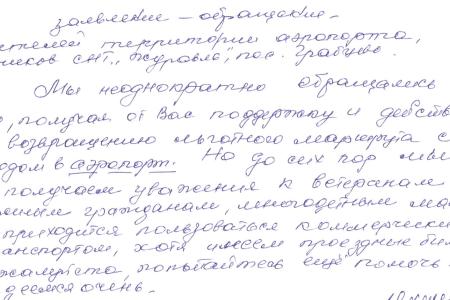 заявление – обращение.
ителей территории аэропорта,
ников СНТ „Журавль", пос. Грабцево.
Мы неоднократно обращались
, получая от Вас поддержку и действ
возвращению льготного маршрута с
дом в аэропорт. Но до сих пор мы
получаем уважения к ветеранам
ным гражданам, многодетным ма
приходится пользоваться коммерчески
анспортом, хотя имеем проездные бил
жалуйста, попытайтесь ещё помочь
деемся очень.